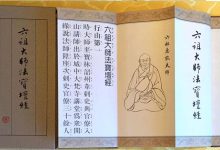 六祖大師法寶壇經
六祖惠能大師
六祖大師法寶壇經
行由第一
時大師至寶林韶州韋刺史與官僚入
山請師出於城中大梵寺講堂為眾開
緣說法師陞座次刺史官僚三十餘人
六祖大師法寶壇經